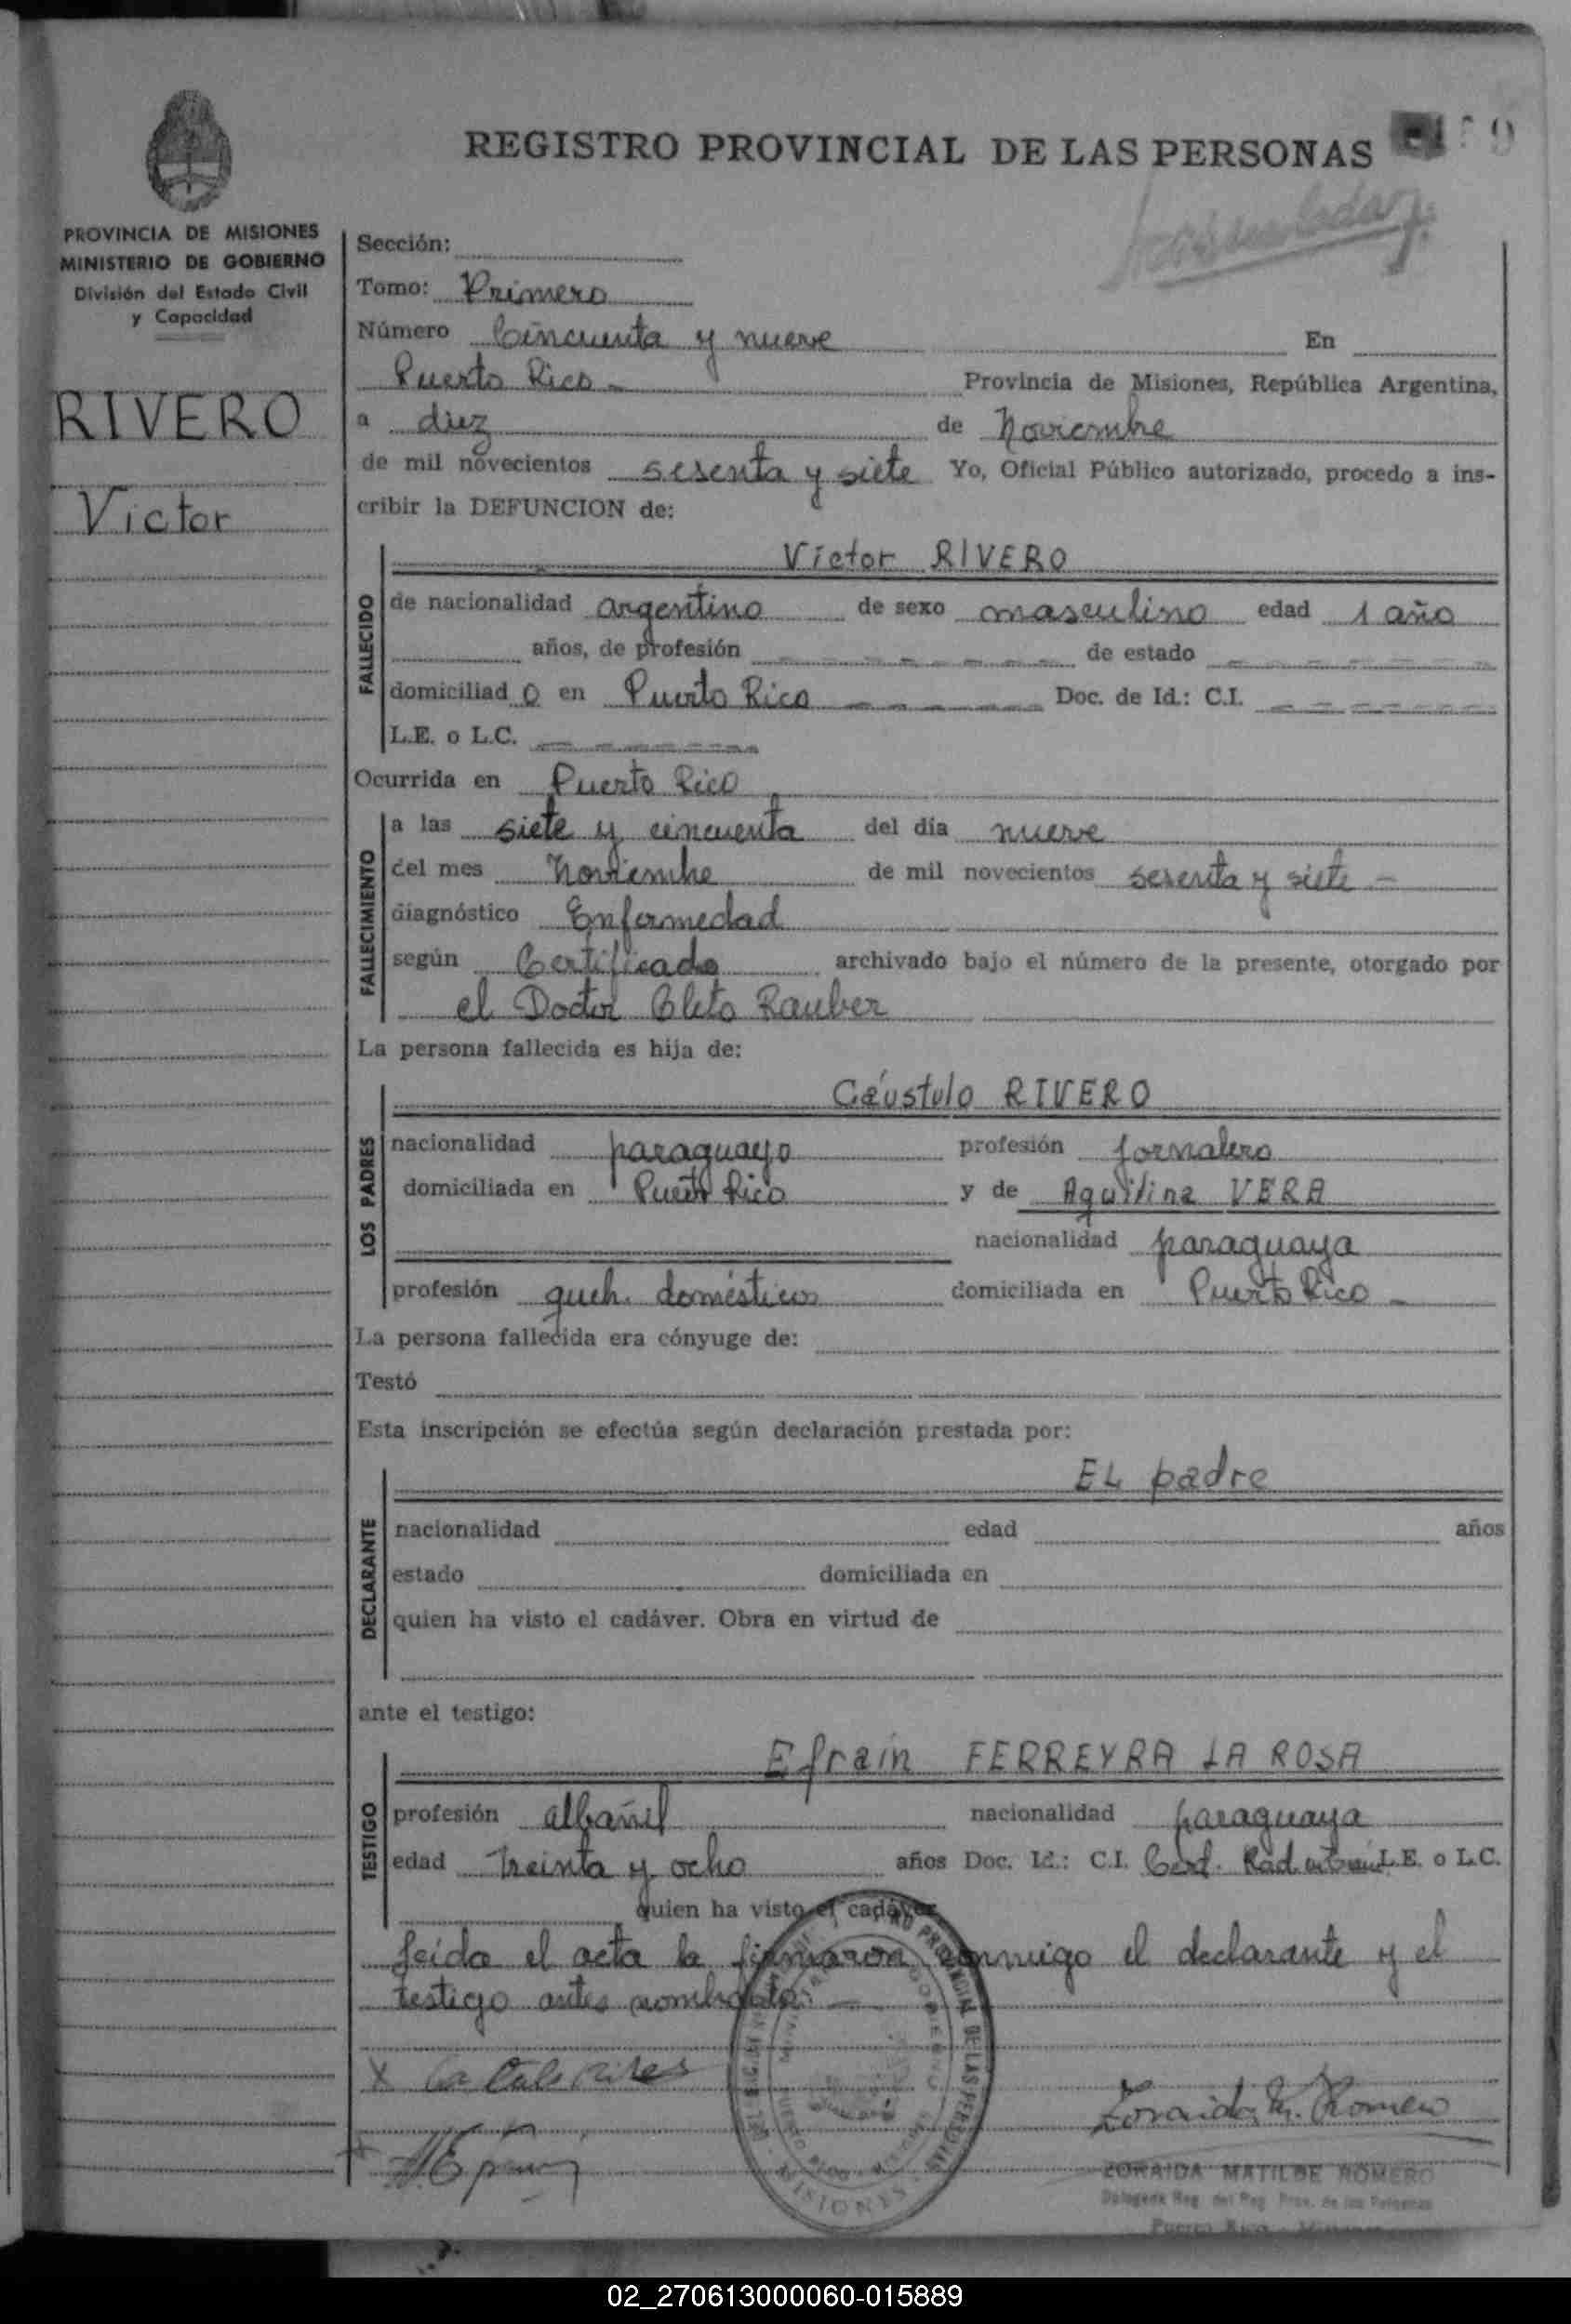 REGISTRO PROVINCIAL DE LAS PERSONAS
PROVINCIA DE MISIONES
MINISTERIO DE GOBIERNO
División del Estado Civil
y Capacidad
RIVERO
Victor
Sección:
Tomo: Primero
Número Cincuenta y nueve En
Puerto Rico - Provincia de Misiones, República Argentina,
a diez de Noviembre
de mil novecientos sesenta y siete Yo, Oficial Público autorizado, procedo a ins-
cribir la DEFUNCION de:
Víctor RIVERO
FALLECIDO
de nacionalidad argentino de sexo masculino edad 1 año
años, de profesión de estado
domiciliad o en Puerto Rico Doc. de Id.: C.I.
L.E. o L.C.
Ocurrida en Puerto Rico
FALLECIMIENTO
a las siete y cincuenta del día nueve
del mes Noviembre de mil novecientos sesenta y siete -
diagnóstico Enfermedad
según Certificado archivado bajo el número de la presente, otorgado por
el Doctor Cleto Rauber
La persona fallecida es hija de:
LOS PADRES
Cáustulo RIVERO
nacionalidad paraguayo profesión jornalero
domiciliada en Puerto Rico y de Aquilina VERA
nacionalidad paraguaya
profesión queh. domésticos domiciliada en Puerto Rico -
La persona fallecida era cónyuge de:
Testó
Esta inscripción se efectúa según declaración prestada por:
DECLARANTE
EL padre
nacionalidad edad años
estado domiciliada en
quien ha visto el cadáver. Obra en virtud de
ante el testigo:
TESTIGO
Efraín FERREYRA LA ROSA
profesión albañil nacionalidad paraguaya
edad treinta y ocho años Doc. Id.: C.I. Cert. L.E. o L.C.
quien ha visto el cadáver
Leída el acta la firmaron conmigo el declarante y el
testigo antes nombrado. -
Zoraida M. Romero
ZORAIDA MATILDE ROMERO
Puerto Rico - Misiones
02_270613000060-015889